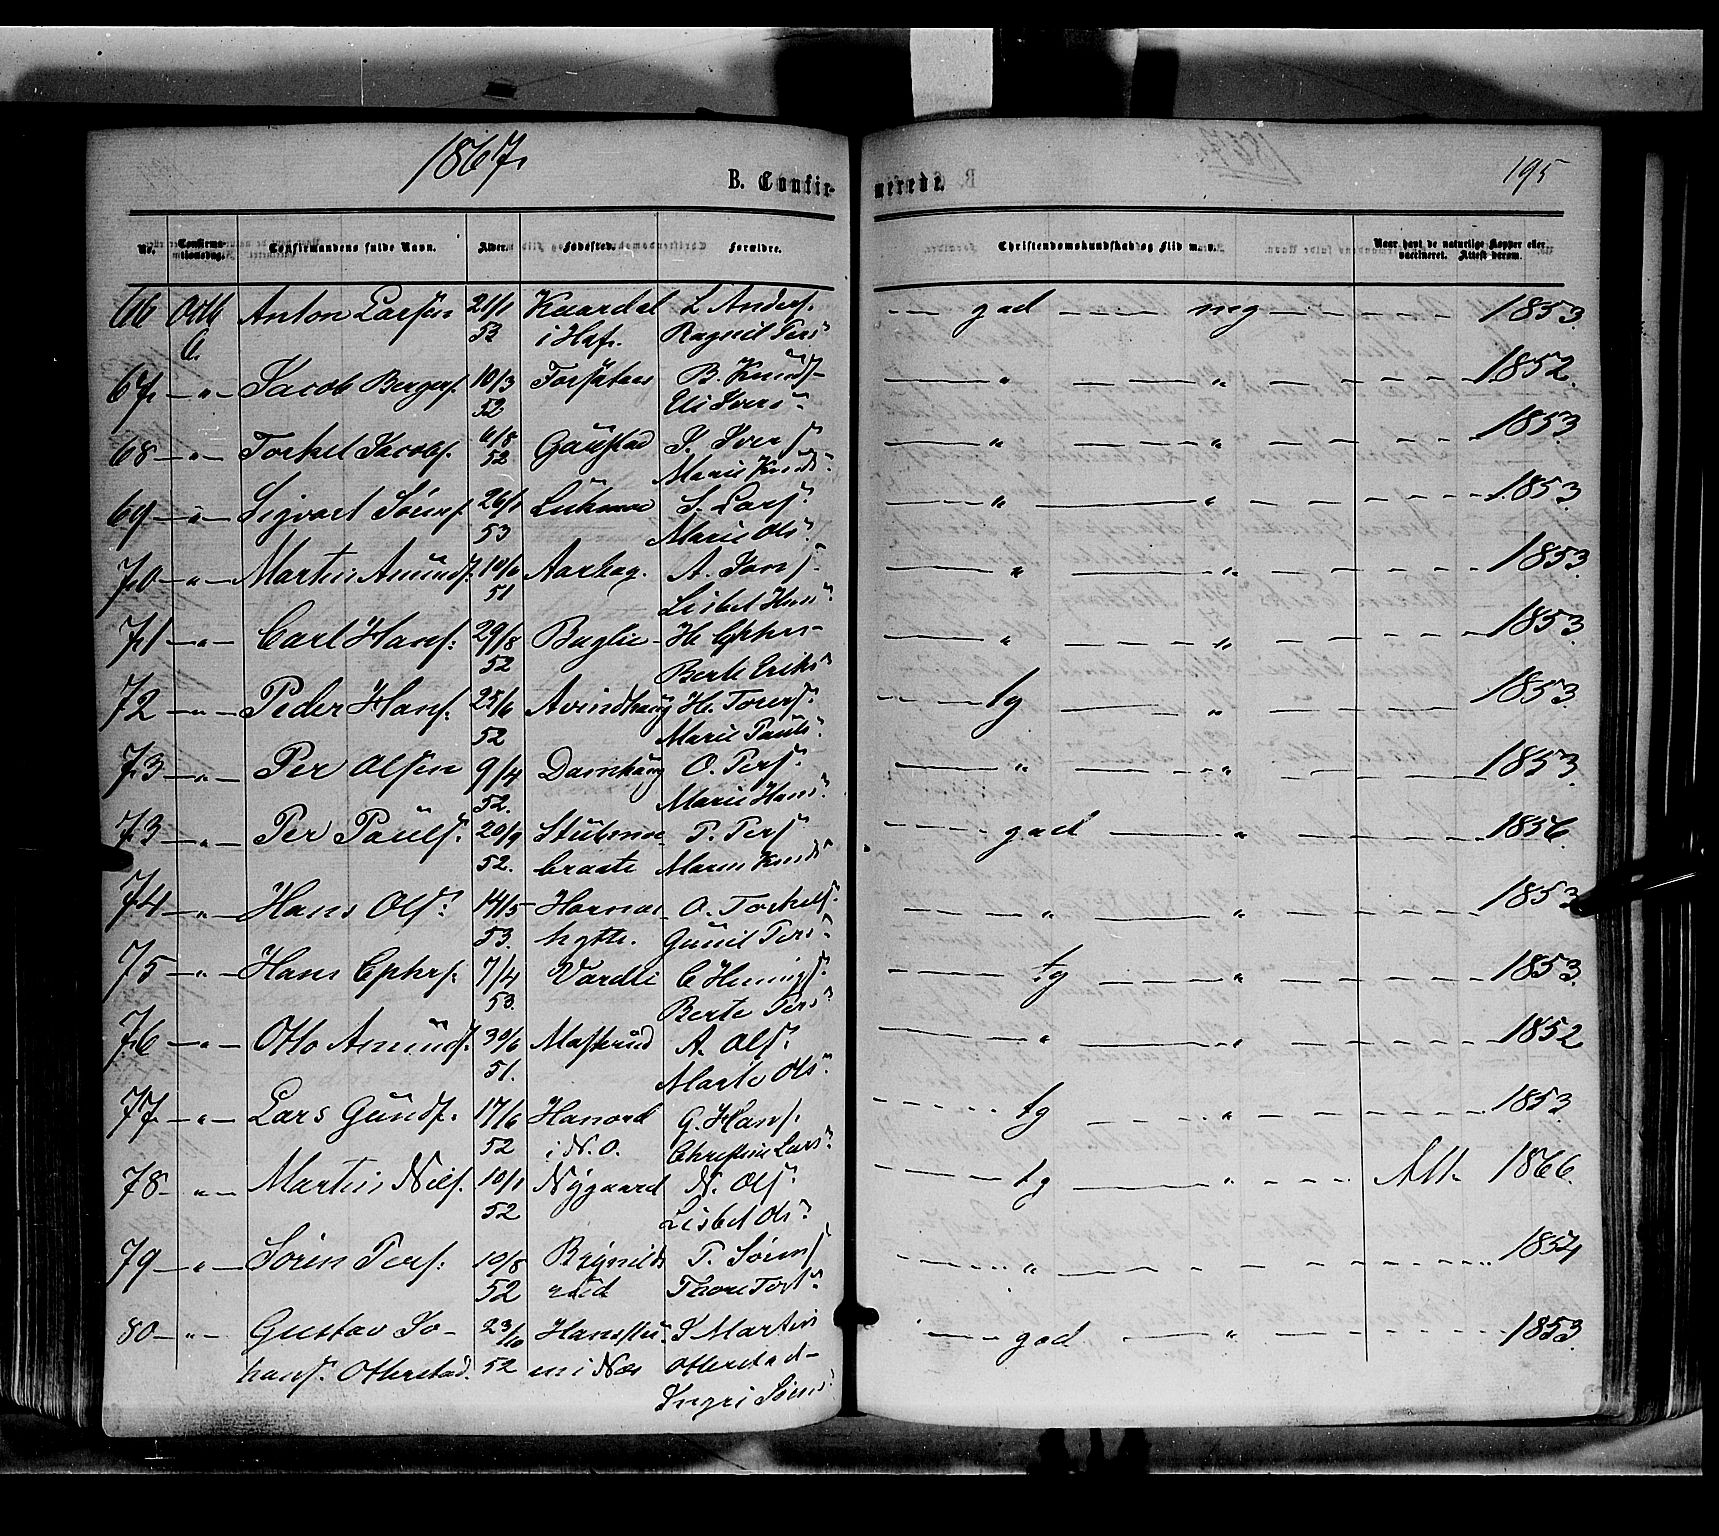 1867.
195
B. Confirmerede.
No.
Confirmationsdag.
Confirmandens fulde Navn.
Alder.
Fødested.
Forældre.
Christendomskundskab og Flid m. v.
Naar havt de naturlige Kopper eller vaccineret. Attest derom.
66 Anton Larsen 21/1 53 i Haf. L Anders. Ragnil Pers. god mg 1853.
67. – " – Jacob Bergers. 10/3 52 B. Knuds– Eli Ivers. " " 1852.
68 – " – Torkel Jacobs. 6/8 52 Gaustad J. Ivers. Marie Knuds. " " 1853.
69 – " – Sigvart Sörens. 26/1 53 S. Lars. Marie Ols. " " 1853.
70 – " – Martin Amunds. 10/6 51 Aarhag. A. Jons. Lisbet Hans. " " 1853.
71 – " – Carl Hans. 29/8 52 Baglie – H. Ephr– Berte Eriks. " " 1853.
72 – " – Peder Hans. 25/6 52 Avindhaug H. Tores. Marie Pauls. tg " 1853.
73 – " – Per Olsen 9/4 52. Damhaug O. Pers. Marie Hans. " " 1853.
73 – " – Per Pauls. 20/9 52. Stubmoe braate P. Pers. Maren Knuds. god " 1856.
74 – " – Hans Ols. 14/5 53. Hornoe– hytte. O. Torkels. Gunil Pers. " " 1853.
75 – " – Hans Ephrs. 7/4 53. Vardli E Hemings. Berte Pers. tg " 1853.
76 – " – Otto Amunds. 30/6 51. Mastrud A. Ols. Marte Ols. " " 1852
77 – " – Lars Gunds. 17/6 52 i N. O. G. Hans. Christine Lars. tg " 1853.
78 – " – Martin Nils. 10/1 52 Nygaard N. Ols. Lisbet Ols. tg " Att. 1866.
79 – " – Sören Pers. 10/8 52 Brynilds rud P. Sörens. Thore Tors. " " 1854
80 – " – Gustav Jo– hans. Otterstad. 23/10 52 Hansstu– en i Næs J Martin Otterstad – Ingri Sörens. god " 1853.